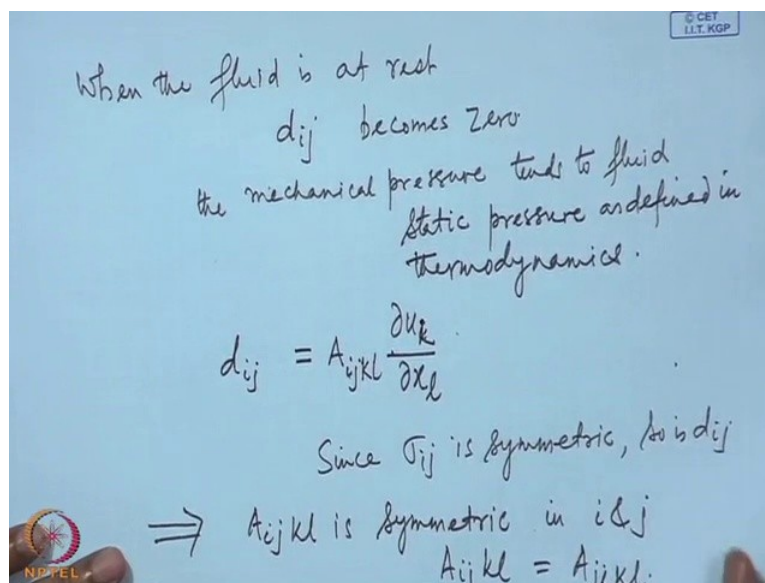 © CET
I.I.T. KGP
When the fluid is at rest
dij becomes Zero
the mechanical pressure tends to fluid
static pressure as defined in
thermodynamics.
dij = Aijkl ∂uk/∂xl
Since σij is symmetric, so is dij
⇒ Aijkl is symmetric in i & j
Aijkl = Aijkl.
NPTEL